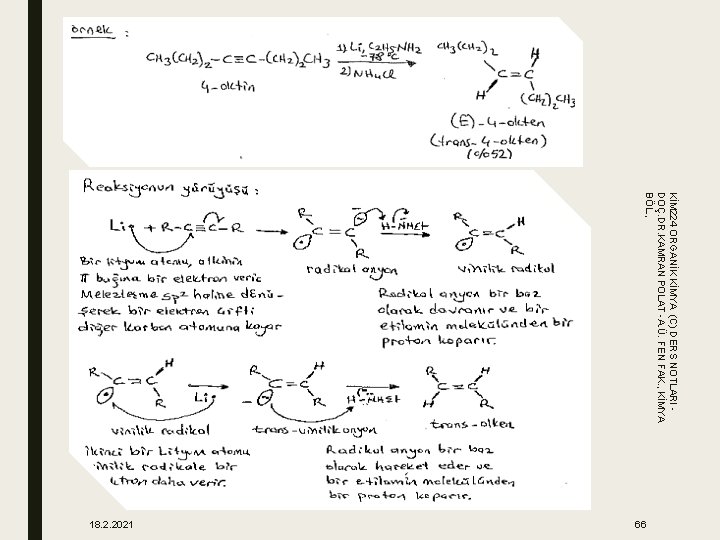 örnek :
CH3(CH2)2-C≡C-(CH2)2CH3
1) Li, C2H5NH2
-78°C
2) NH4Cl
CH3(CH2)2
H
C=C
H
(CH2)2CH3
4-oktin
(E)-4-okten
(trans-4-okten)
(%52)
Reaksiyonun yürüyüşü :
Li· + R-C≡C-R
R
C=C
R
H-NHEt
R
H
C=C
R
radikal anyon
vinilik radikal
Bir lityum atomu, alkinin
π bağına bir elektron verir
Melezleşme sp2 haline dönü-
şerek bir elektron çifti
diğer karbon atomuna kayar
Radikal anyon bir baz
olarak davranır ve bir
etilamin molekülünden bir
proton koparır.
R
H
C=C
R
Li·
R
H
C=C
R
H-NHEt
R
H
C=C
H
R
vinilik radikal
trans-vinilik anyon
trans-alken
ikinci bir Lityum atomu
inilik radikale bir
ktron daha verir.
Radikal anyon bir baz
olarak hareket eder ve
bir etilamin molekülünden
bir proton koparır.
KİM224 ORGANİK KİMYA (C) DERS NOTLARI -
DOÇ.DR.KAMRAN POLAT - A.Ü. FEN FAK., KİMYA
BÖL.,
18.2.2021
66